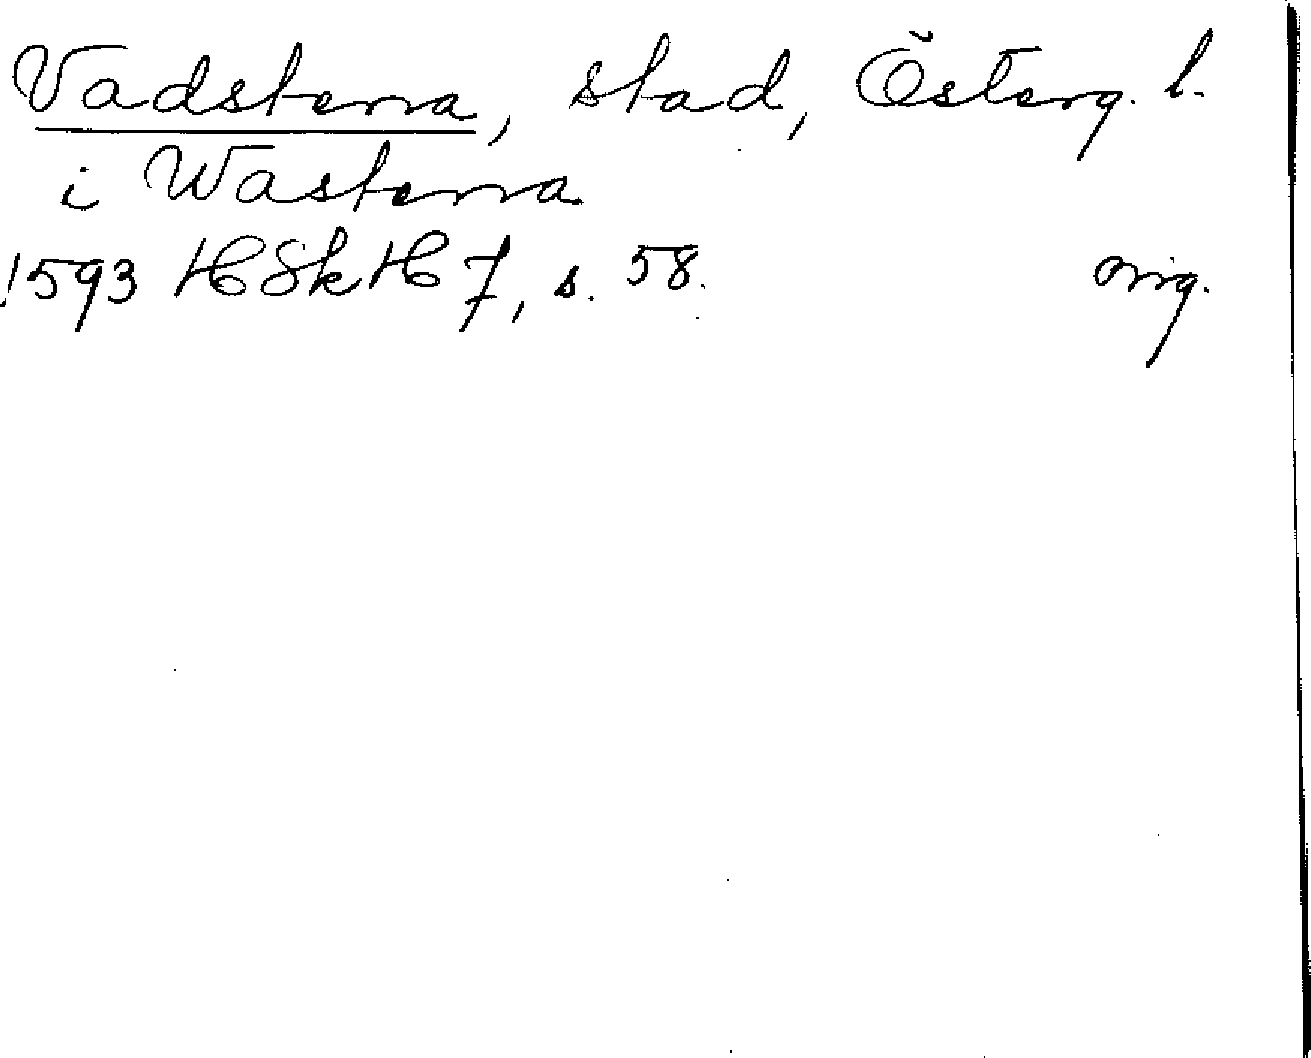 Vadstena, stad, Österg. l.
i Wastena
1593 HSkH 7, s. 58. orig.